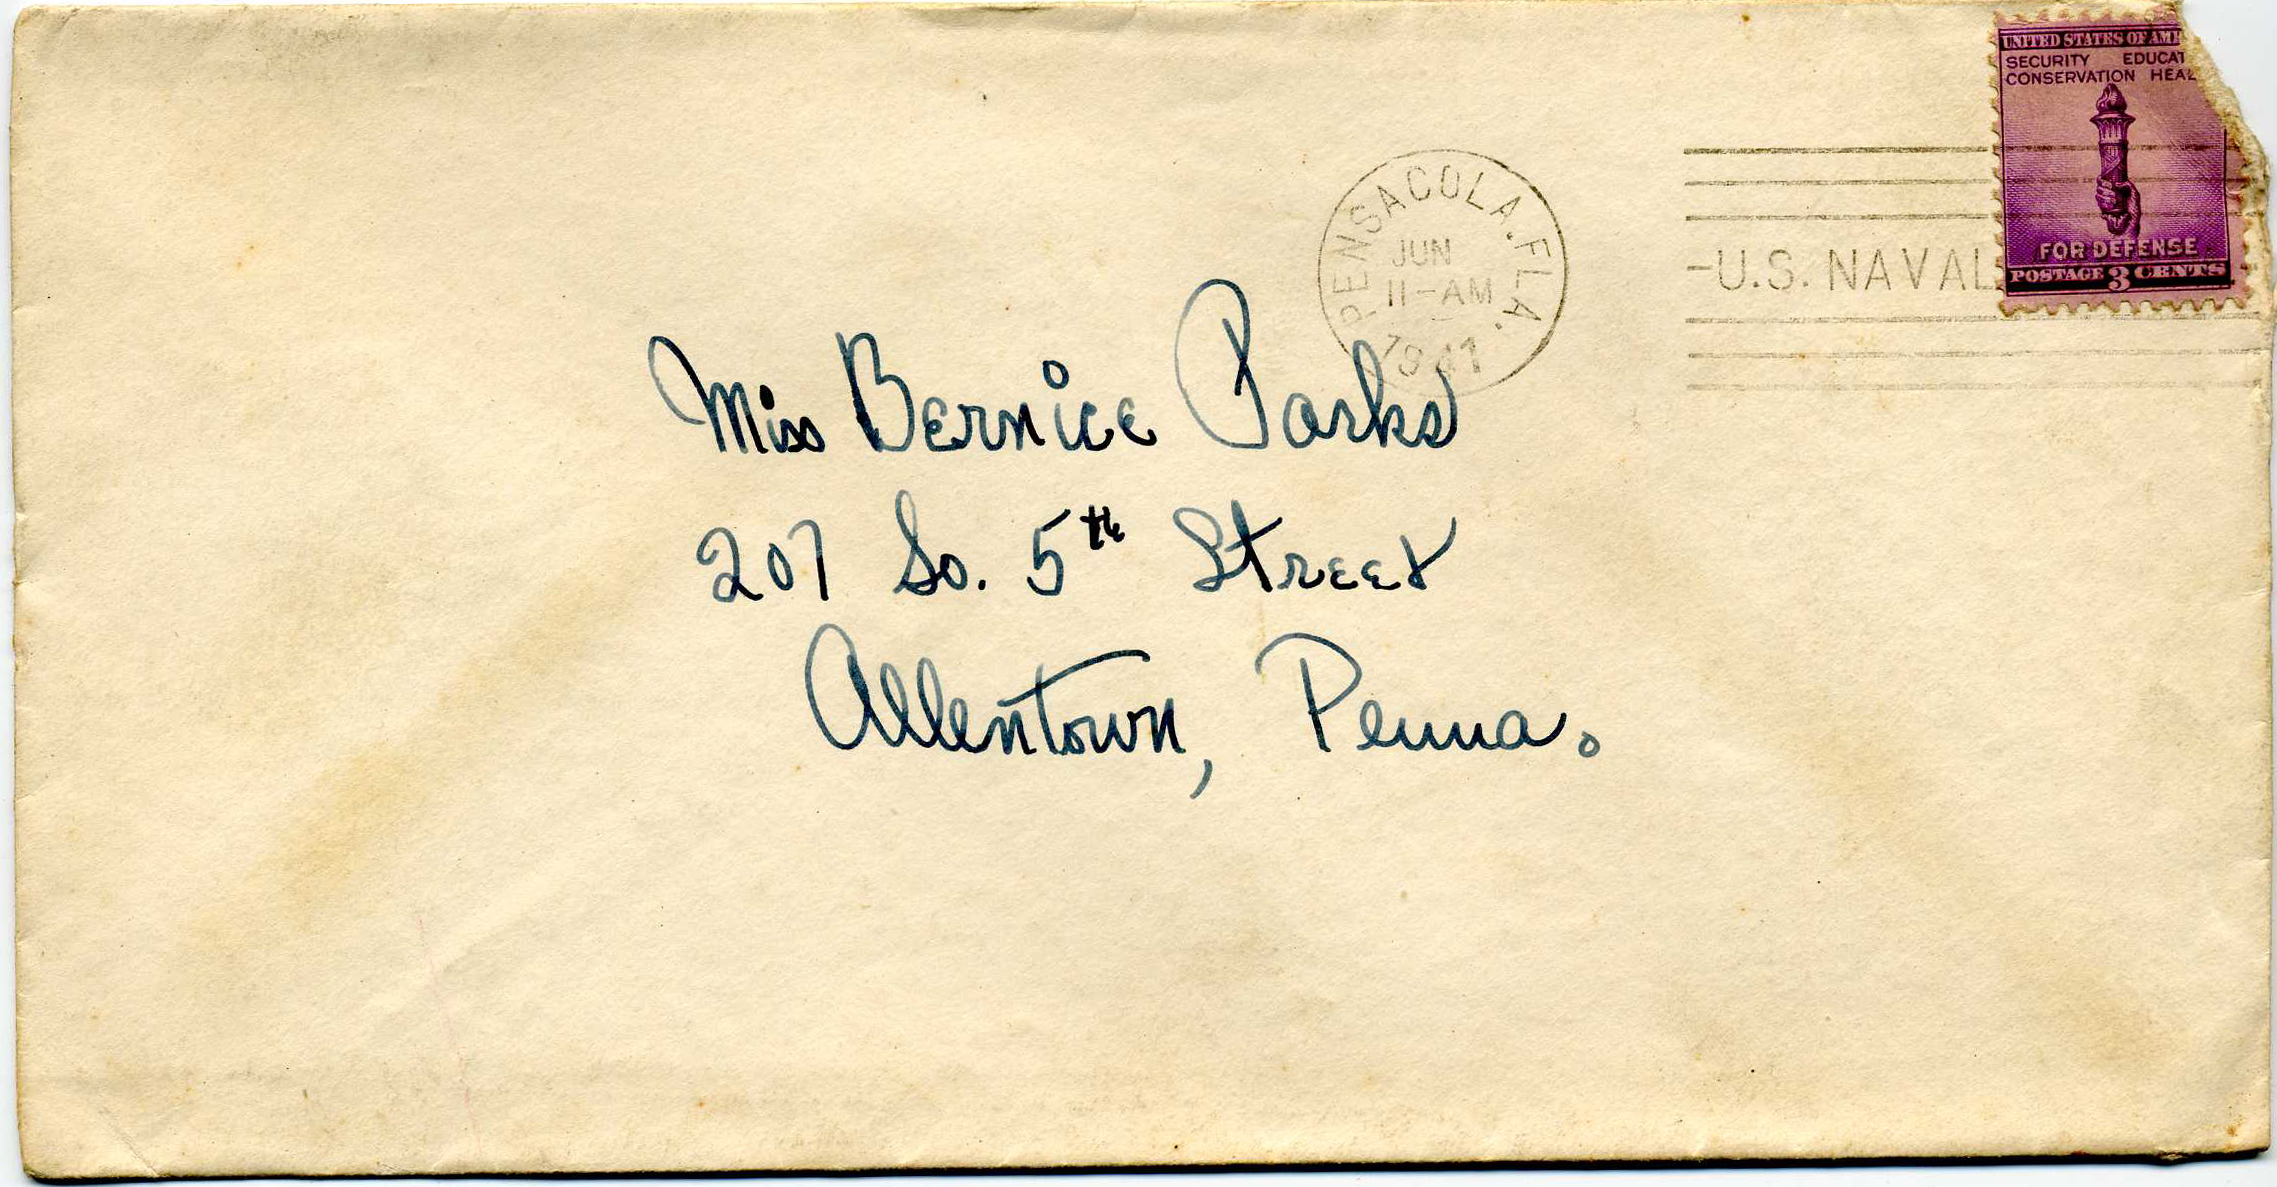 UNITED STATES OF AME
SECURITY EDUCAT
CONSERVATION HEAL
FOR DEFENSE
POSTAGE 3 CENTS
PENSACOLA. FLA.
JUN
11-AM
1941
-U.S. NAVAL
Miss Bernice Parks
207 So. 5th Street
Allentown, Penna.